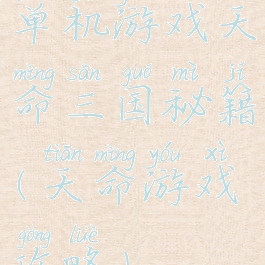 单机游戏天
mìng sān guó mì jí
命三国秘籍
tiān mìng yóu xì
(天命游戏
gōng lüè
攻略)